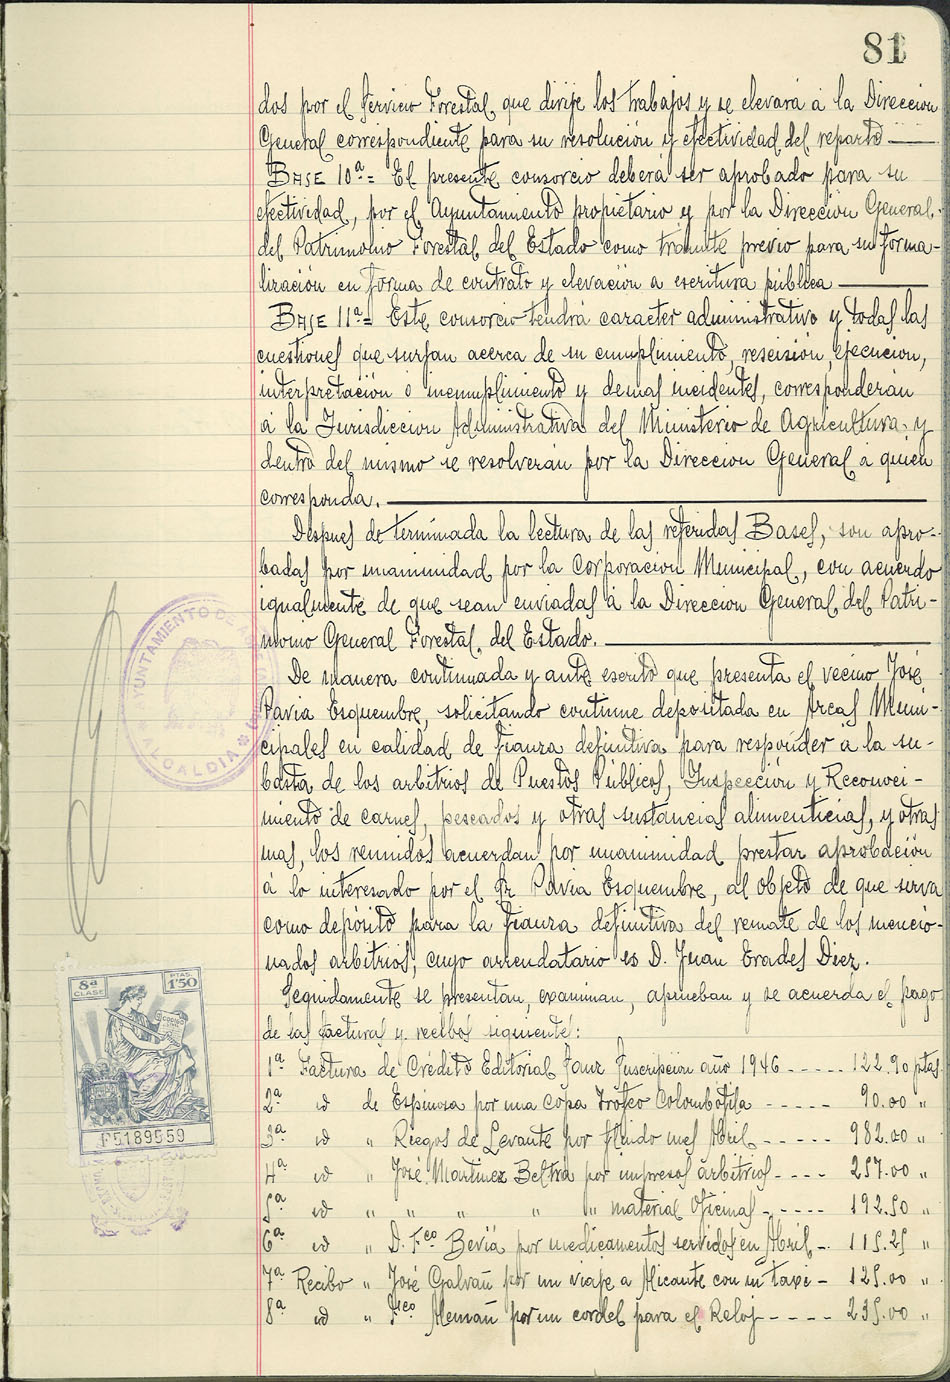 81
dos por el Servicio Forestal que dirije los trabajos y se elevará á la Direccion
General correspondiente para su resolución y efectividad del reparto
BASE 10ª = El presente consorcio deberá ser aprobado para su
efectividad, por el Ayuntamiento propietario y por la Direccion General
del Patrimonio Forestal del Estado como trámite previo para su forma-
lización en forma de contrato y elevación a escritura pública
BASE 11ª = Este consorcio tendrá caracter administrativo y todas las
cuestiones que surjan acerca de su cumplimiento, rescisión, ejecucion,
interpretación ó incumplimiento y demas incidentes, corresponderán
á la Jurisdiccion Administrativa del Ministerio de Agricultura y
dentro del mismo se resolverán por la Direccion General a quien
corresponda.
Despues de terminada la lectura de las referidas Bases, son apro-
badas por unanimidad por la Corporacion Municipal, con acuerdo
igualmente de que sean enviadas á la Direccion General del Patri-
monio General Forestal del Estado.
De manera continuada y ante escrito que presenta el vecino José
Pavia Esquembre, solicitando continue depositada en Arcas Muni-
cipales en calidad de fianza definitiva para responder á la su-
basta de los arbitrios de Puestos Públicos, Inspección y Reconoci-
miento de carnes, pescados y otras sustancias alimenticias, y otras
mas, los reunidos acuerdan por unanimidad prestar aprobación
á lo interesado por el Sr Pavia Esquembre, al objeto de que sirva
como depósito para la fianza definitiva del remate de los mencio-
nados arbitrios, cuyo arrendatario es D. Juan Erades Diez.
Seguidamente se presentan, examinan, aprueban y se acuerda el pago
de las facturas y recibos siguiente:
1ª Factura de Crédito Editorial Sanz Suscripcion año 1946 ----- 122.90 ptas
2ª id de Espinosa por una Copa Trofeo Colombófila ----- 90.00 "
3ª id " Riegos de Levante por fluido mes Abril ----- 982.00 "
4ª id " José Martinez Beltrá por impresos arbitrios ---- 257.00 "
5ª id " " " " " material Oficinas ----- 192.50 "
6ª id " D. Fco Beviá por medicamentos servidos en Abril -. 115.25 "
7ª Recibo " José Galvañ por un viaje a Alicante con su taxi - 125.00 "
8ª id " Fco Alemañ por un cordel para el Reloj ----- 235.00 "
AYUNTAMIENTO DE
ALCALDIA
8ª CLASE
PTAS. 1'50
F5189559